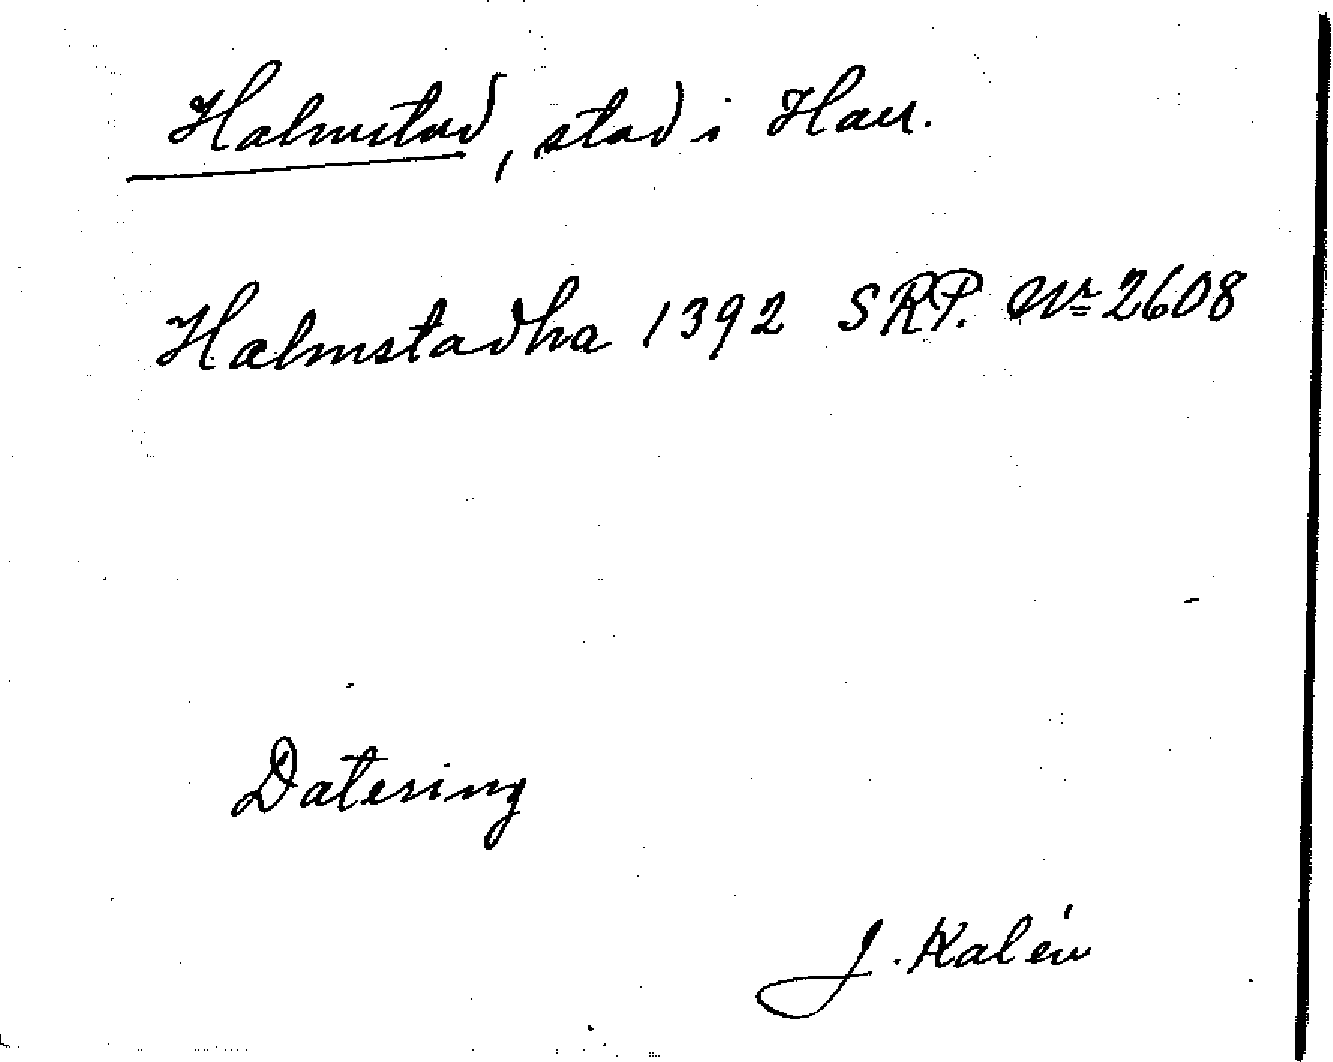 Halmstad, stad i Hall.
Halmstadha 1392 SRP. Nr 2608
Datering
J. Kalén